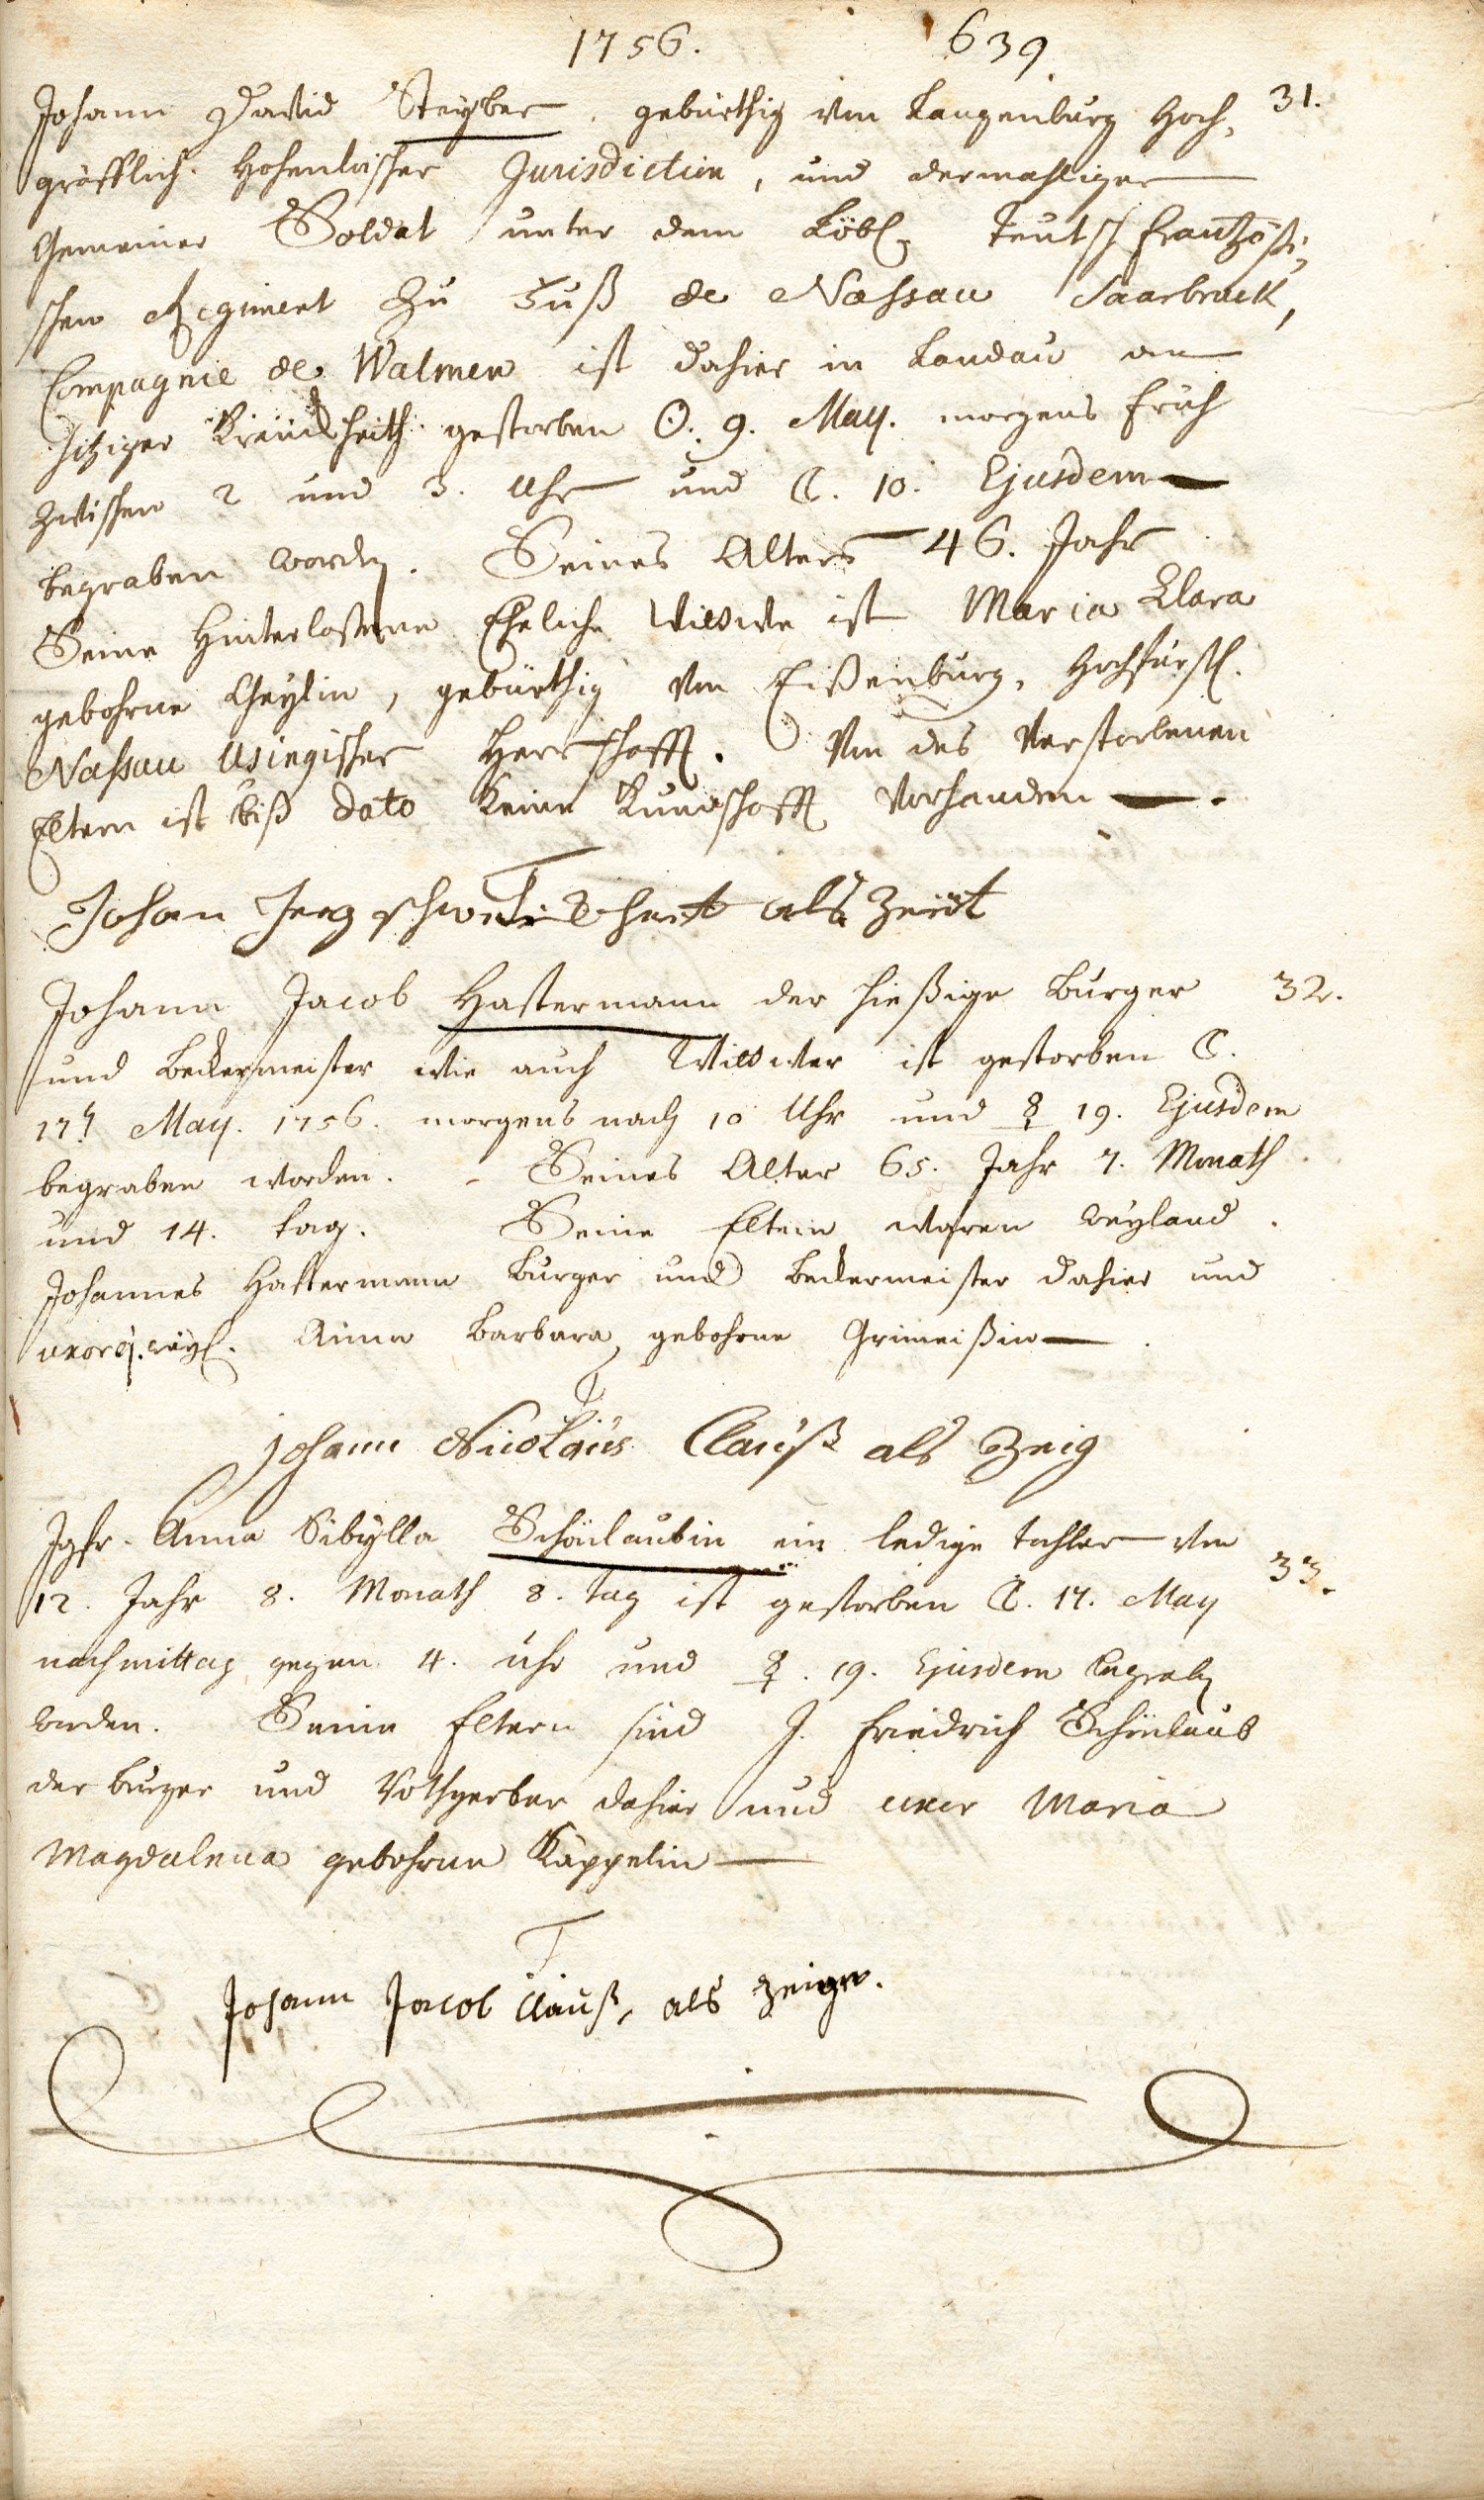 1756. 639
Johann David Steyber, gebürthig von Langenburg Hoch, 31.
gräfflich. Hohenloischer Jurisdiction, und dermahliger
Gemeiner Soldat unter dem Löbl. Teutsch Frantzösi,
schen Regiment zu Fuß de Nassau Saarbruck,
Compagnie de Walmen ist dahier in Landau an
hitziger Kranckheith gestorben ☉. 9. May. morgens früh
zwischen 2 und 3. Uhr und ☾. 10. Ejusdem
begraben worden. Seines Alters 46. Jahr
Seine Hinterlaßene Eheliche Wittwe ist Maria Clara
gebohrne Cheylin, gebürthig von Eißenburg, Hochfürstl.
Nassau Usingischer Herrschafft. Von des Verstorbenen
Eltern ist biß dato keine Kundschafft vorhanden
Johan Jerg als Zeict
Johann Jacob Hastermann der hießige Burger 32.
und Beckermeister wie auch Wittwer ist gestorben ☾.
17t May. 1756. morgens nach 10 Uhr und ☿ 19. Ejusdem
begraben worden. Seines Alter 65. Jahr 7. Monath
und 14. tag. Seine Eltern waren weyland
Johannes Hastermann Burger und Beckermeister dahier und
uxor ej. weyl. Anna Barbara, gebohrne Grimeißin
Johann Nicolaüs Clauß als Zeig
Jgfr. Anna Sibylla Schönlaubin ein ledige tochter von 33.
12. Jahr 8. Monath 8. tag ist gestorben ☾. 17. May
nachmittag gegen 4. uhr und ☿. 19. Ejusdem begraben
worden. Seine Eltern sind J. Friedrich Schönlaub
der Burger und Rothgerber dahier und uxor Maria
Magdalena gebohrne Kappelin
Johann Jacob Clauß, als Zeigen.